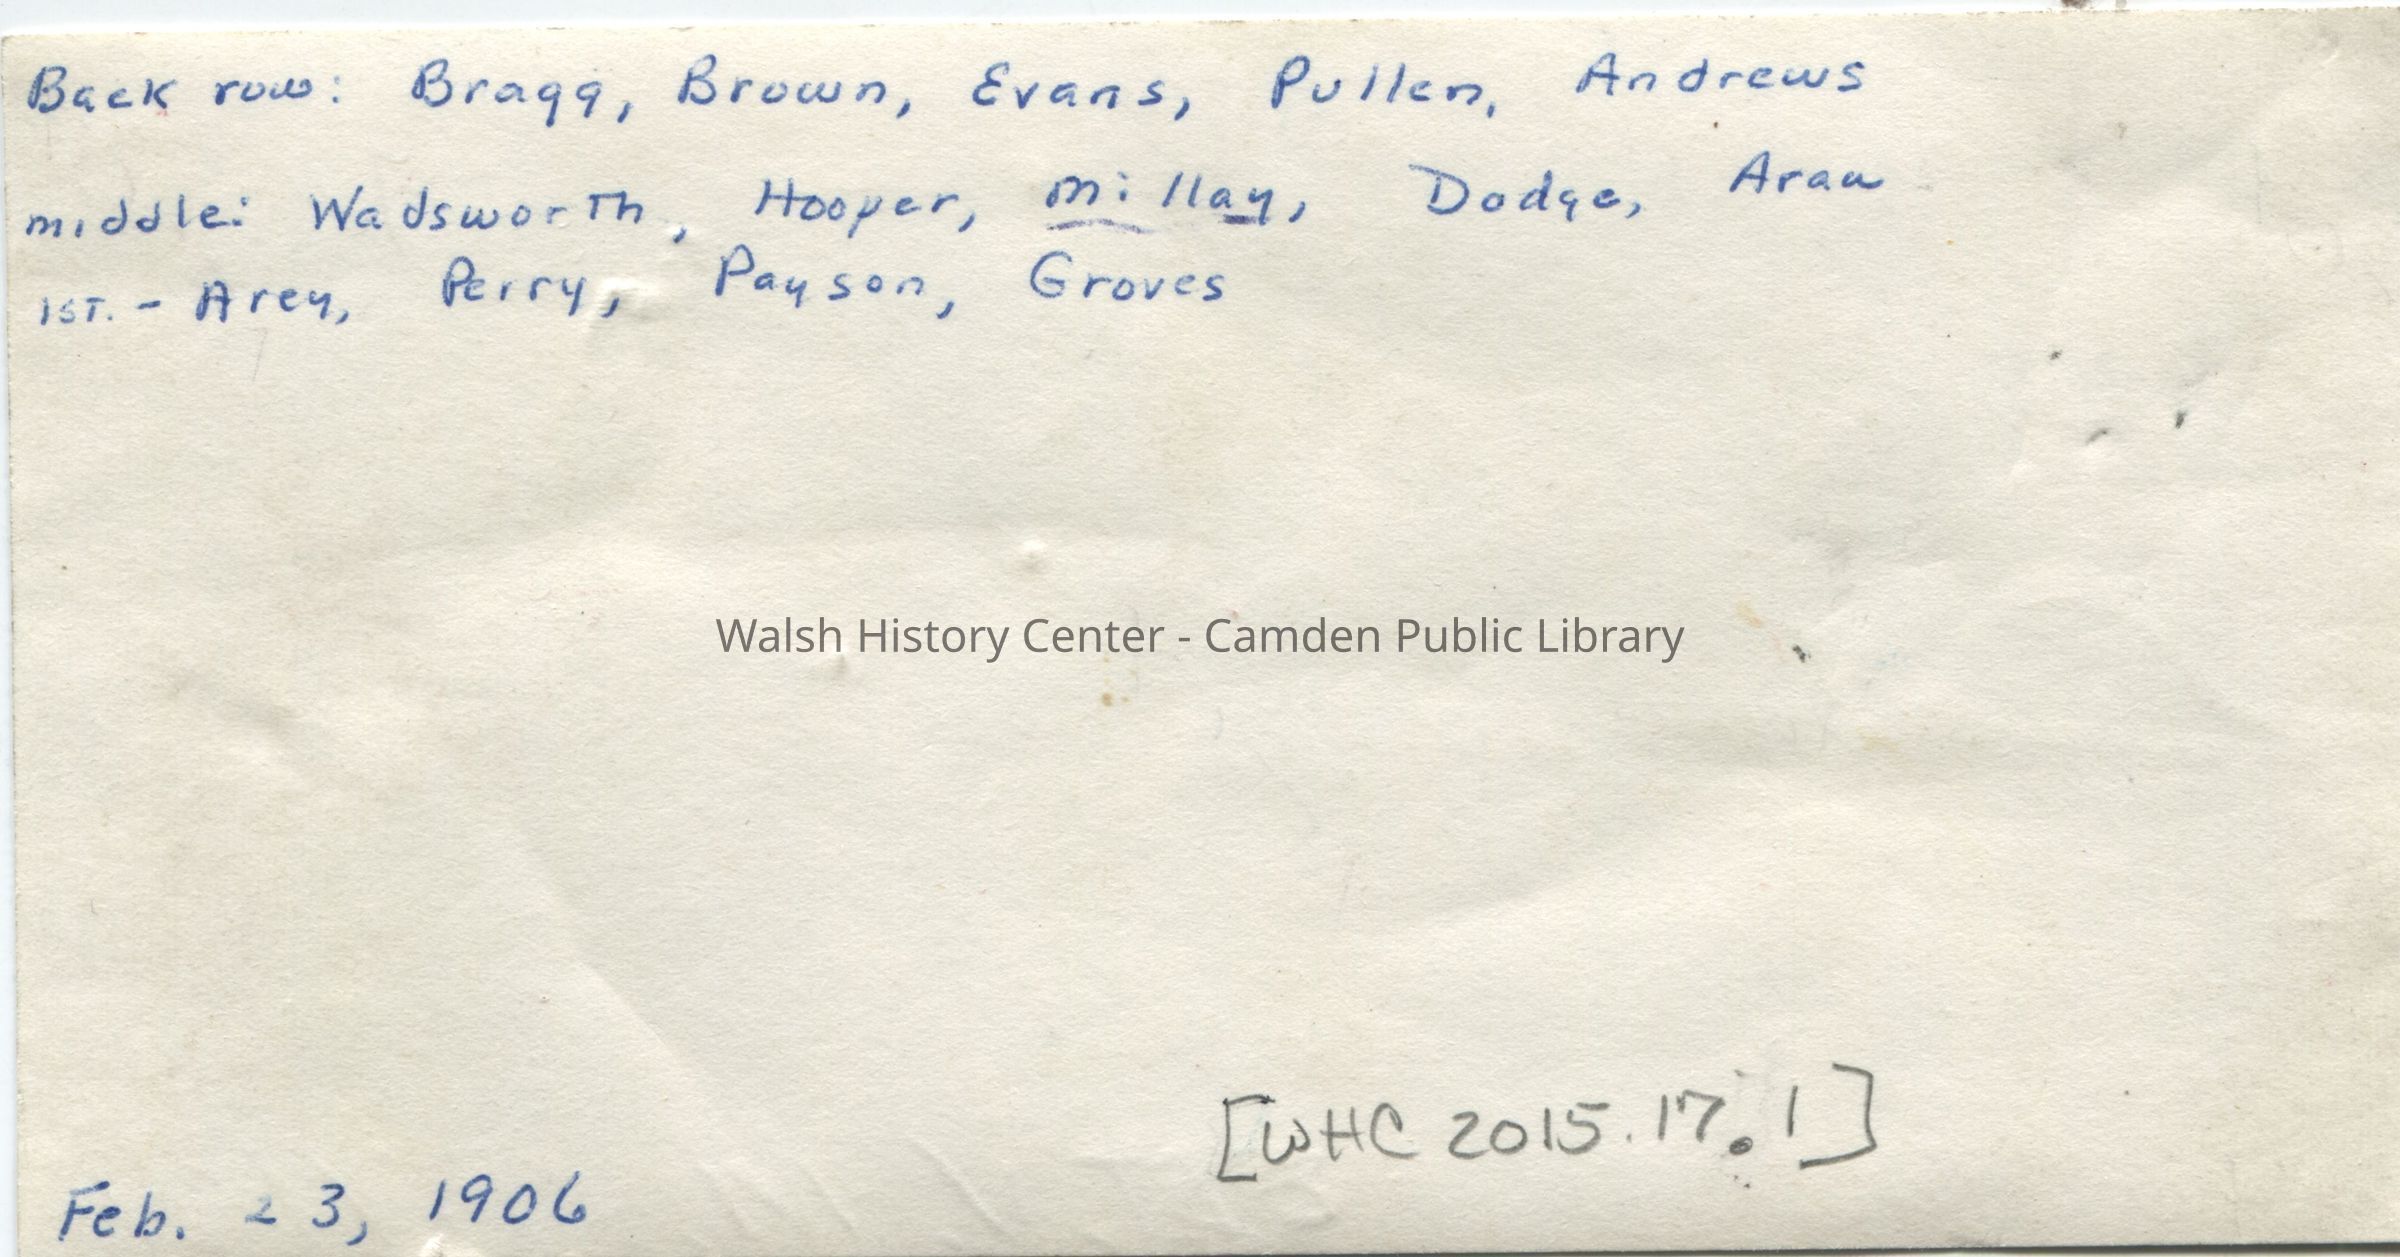 Back row: Bragg, Brown, Evans, Pullen, Andrews
middle: Wadsworth, Hooper, Millay, Dodge, Arau
1ST. - Arey, Perry, Payson, Groves
Walsh History Center - Camden Public Library
[WHC 2015.17.1]
Feb. 23, 1906